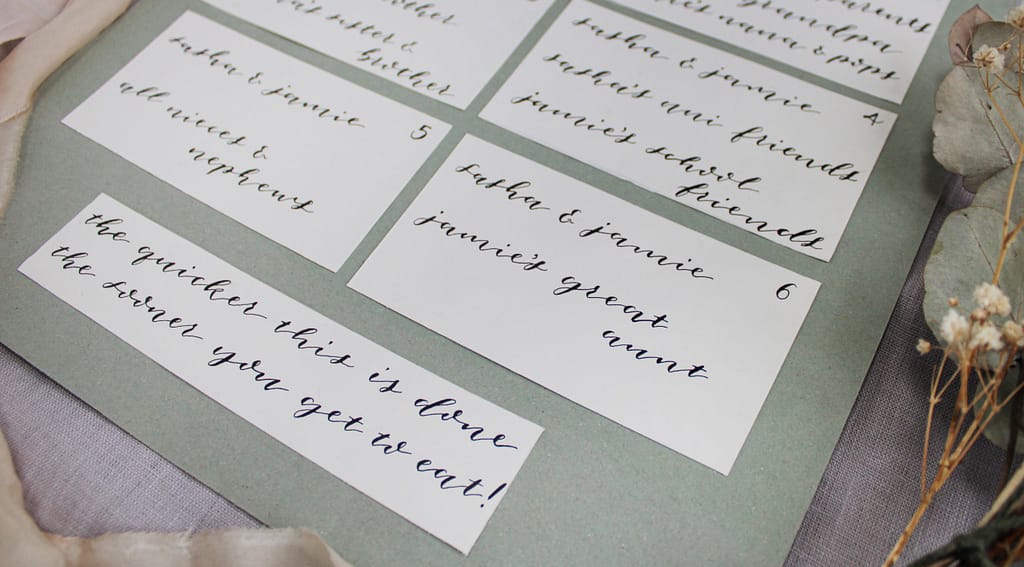 sister &
brother
parents
grandpa
nana & pops
sasha & jamie
all nieces &
nephews
5
sasha & jamie
sasha's uni friends
jamie's school
friends
4
sasha & jamie
jamie's great
aunt
6
the quicker this is done
the sooner you get to eat!